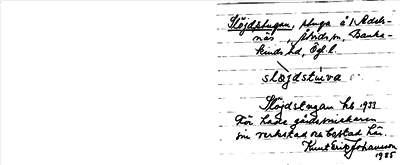 Slöjdstugan, stuga å 1 Adels-
näs, Åtvids sn, Banke-
kinds hd, Ögl.
slöjdstúva
Slöjdstugan hb 1933
Här hade gårdssnickaren
sin verkstad o bostad här.
Kurt Erik Johansson
1985